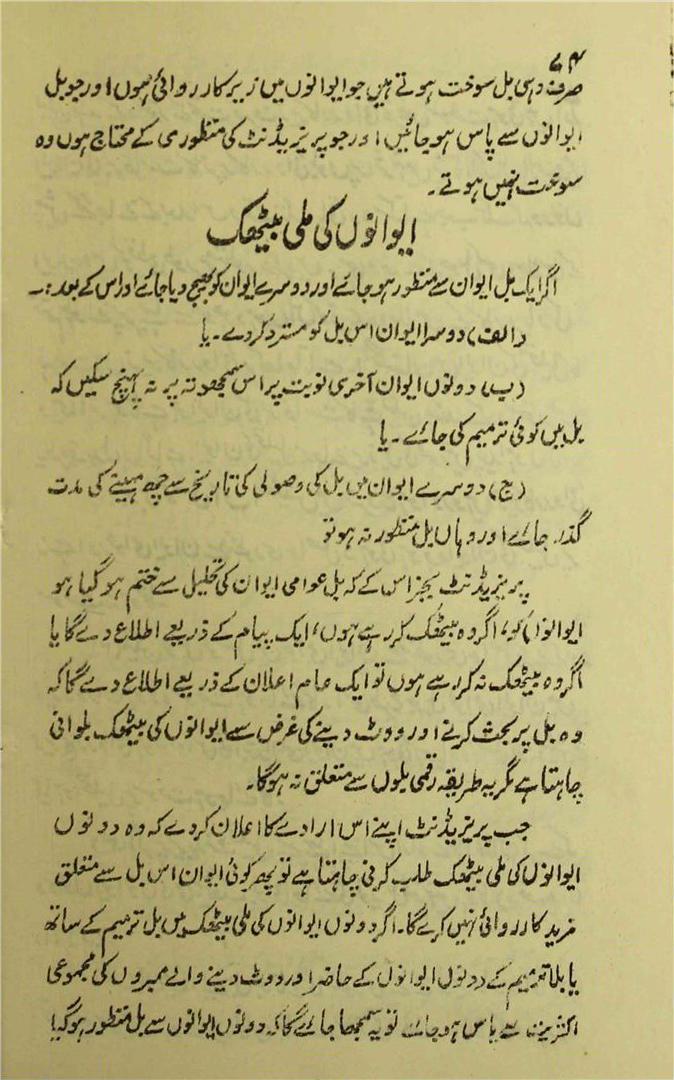 ۷۴
صرف وہی بل سوخت ہوتے ہیں جو ایوانوں میں زیر کارروائی ہوں اور جو بل
ایوانوں سے پاس ہو جائیں اور جو پریزیڈنٹ کی منظوری کے محتاج ہوں وہ
سوخت نہیں ہوتے۔
ایوانوں کی ملی بیٹھک
اگر ایک بل ایوان سے منظور ہو جائے اور دوسرے ایوان کو بھیج دیا جائے اور اس کے بعد :۔
(الف) دوسرا ایوان اس بل کو مسترد کر دے۔ یا
(ب) دونوں ایوان آخری نوبت پر اس سمجھوتہ پر نہ پہنچ سکیں کہ
بل میں کوئی ترمیم کی جائے۔ یا
(ج) دوسرے ایوان میں بل کی وصولی کی تاریخ سے چھ مہینے کی مدت
گذر جائے اور وہاں بل منظور نہ ہو تو
پریزیڈنٹ بجز اس کے کہ بل عوامی ایوان کی تحلیل سے ختم ہو گیا ہو
ایوانوں کو، اگر وہ بیٹھک کر رہے ہوں، ایک پیام کے ذریعے اطلاع دے گا یا
اگر وہ بیٹھک نہ کر رہے ہوں تو ایک عام اعلان کے ذریعے اطلاع دے گا کہ
وہ بل پر بحث کرنے اور ووٹ دینے کی غرض سے ایوانوں کی بیٹھک بلوانی
چاہتا ہے مگر یہ طریقہ رقمی بلوں سے متعلق نہ ہوگا۔
جب پریزیڈنٹ اپنے اس ارادے کا اعلان کر دے کہ وہ دونوں
ایوانوں کی ملی بیٹھک طلب کرنی چاہتا ہے تو پھر کوئی ایوان اس بل سے متعلق
مزید کارروائی نہیں کرے گا۔ اگر دونوں ایوانوں کی ملی بیٹھک میں بل ترمیم کے ساتھ
یا بلا ترمیم کے دونوں ایوانوں کے حاضر اور ووٹ دینے والے ممبروں کی مجموعی
اکثریت سے پاس ہو جائے تو یہ سمجھا جائے گا کہ دونوں ایوانوں سے بل منظور ہو گیا